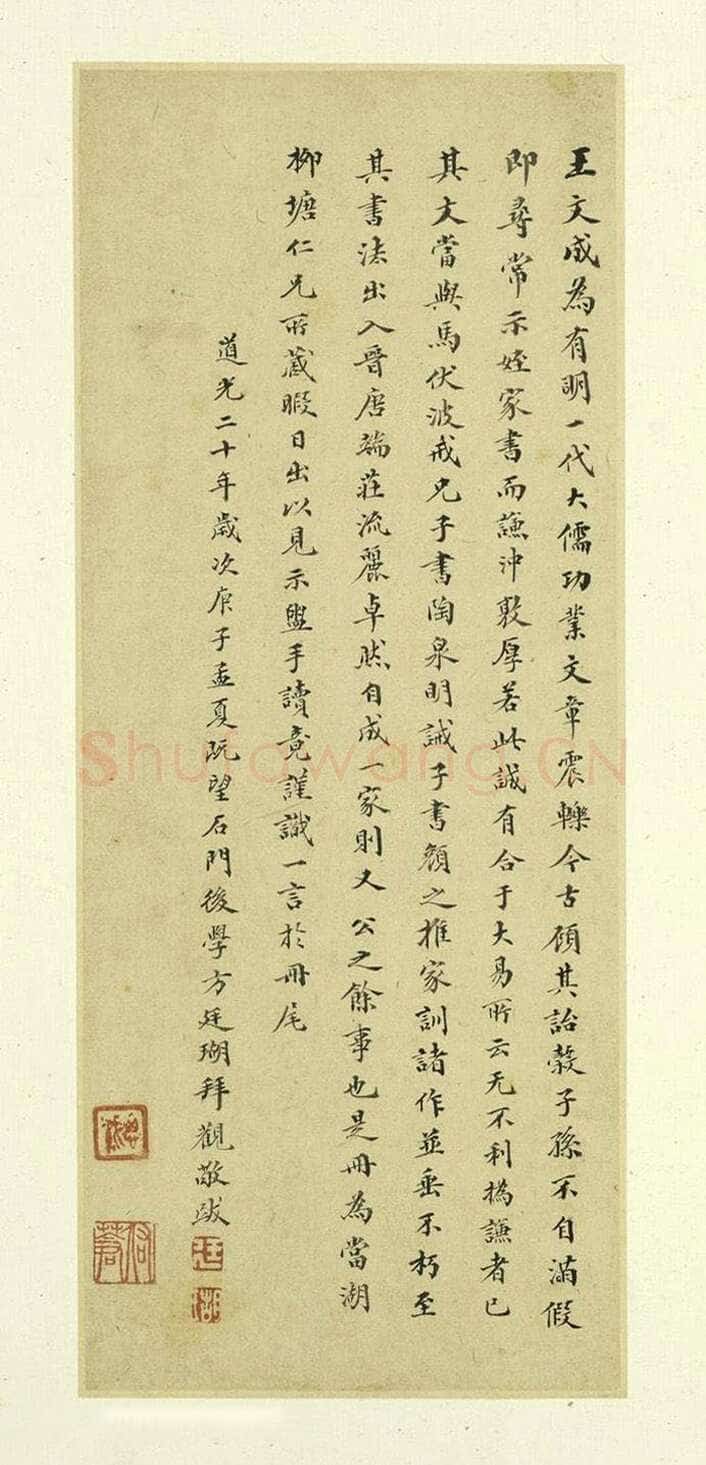 王文成為有明一代大儒功業文章震轢今古顧其詒穀子孫不自滿假
即尋常示姪家書而謙沖敦厚若此誠有合于大易所云无不利撝謙者已
其文當與馬伏波戒兄子書陶泉明誡子書顏之推家訓諸作並垂不朽至
其書法出入晉唐端莊流麗卓然自成一家則又公之餘事也是冊為當湖
柳塘仁兄所藏暇日出以見示盥手讀竟謹識一言於冊尾
道光二十年歲次庚子孟夏既望石門後學方廷瑚拜觀敬跋
廷瑚
Shufawang.CN